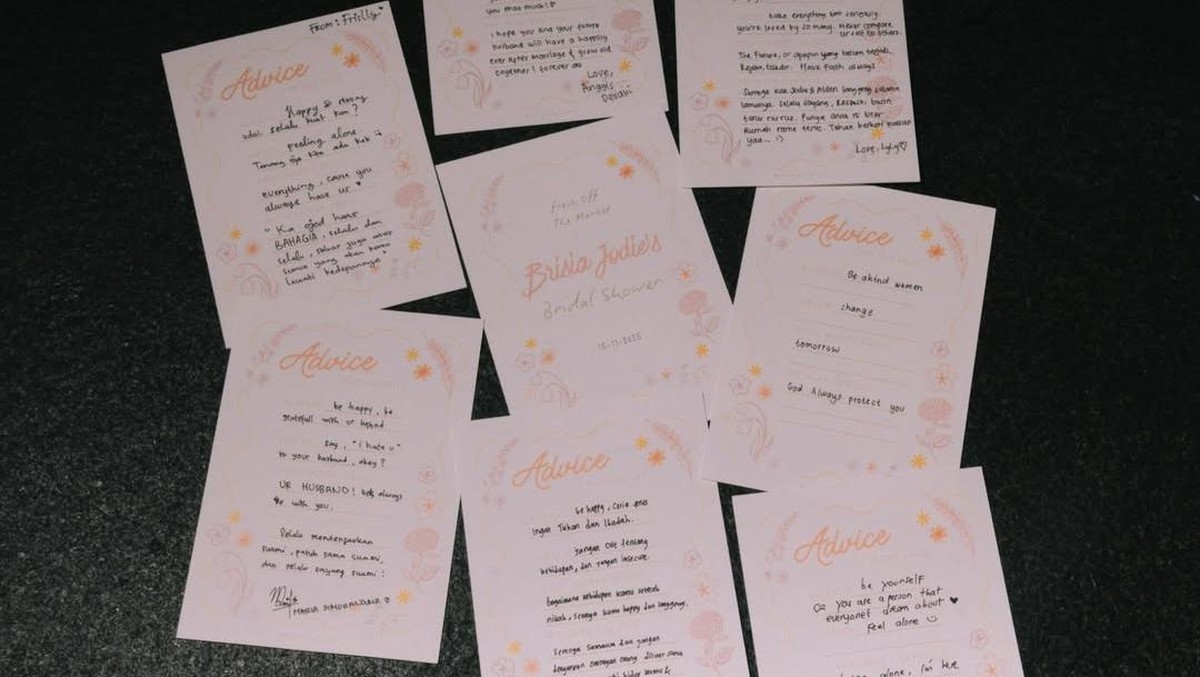 From: Frislly
Advice
Happy & strong
selalu buat kamu?
Feeling alone
Tenang aja kita ada kok
everything, cause you
always have us ♥
"Ka ojod harus
BAHAGIA, selalu dan
selalu, sabar juga atas
semua yang akan kamu
lewati kedepannya"
you that much!
I hope you and your future
husband will have a happily
ever after marriage & grow old
together! forever ∞
Love,
Anggis
Devari
take everything too seriously.
you're loved by so many. Never compare
urself to others.
The Future, or apapun yang belum terjadi.
Have faith always
Semoga kaa Jodie & Alden langgeng selama
lamanya. Selalu sayang,
Punya anak
rumah rame terus. Tuhan berkati kalian
yaa... :)
Love, Lyly♡
Fresh Off
The Market
Brisia Jodie's
Bridal Shower
15-11-2025
Advice
Be a kind women
change
tomorrow
God Always protect you
Advice
be happy, be
gratefull with ur hsbnd
say, "i hate u"
to your husband, okey?
UR HUSBAND! always
be with you.
Selalu mendengarkan
suami, patuh sama suami,
dan selalu sayang suami!
MARIA SIMORANGKIR
Advice
be happy, ceria terus
Ingat Tuhan dan Ibadah.
jangan OVT tentang
kehidupan, dan jangan insecure.
bagaimana kehidupan kamu setelah
nikah, semoga kamu happy dan langgeng.
Semoga Samawa dan jangan
dengarkan omongan orang diluar sana
Advice
be yourself
cz you are a person that
everyonet dream about ♥
Feel alone
alone, i'm here